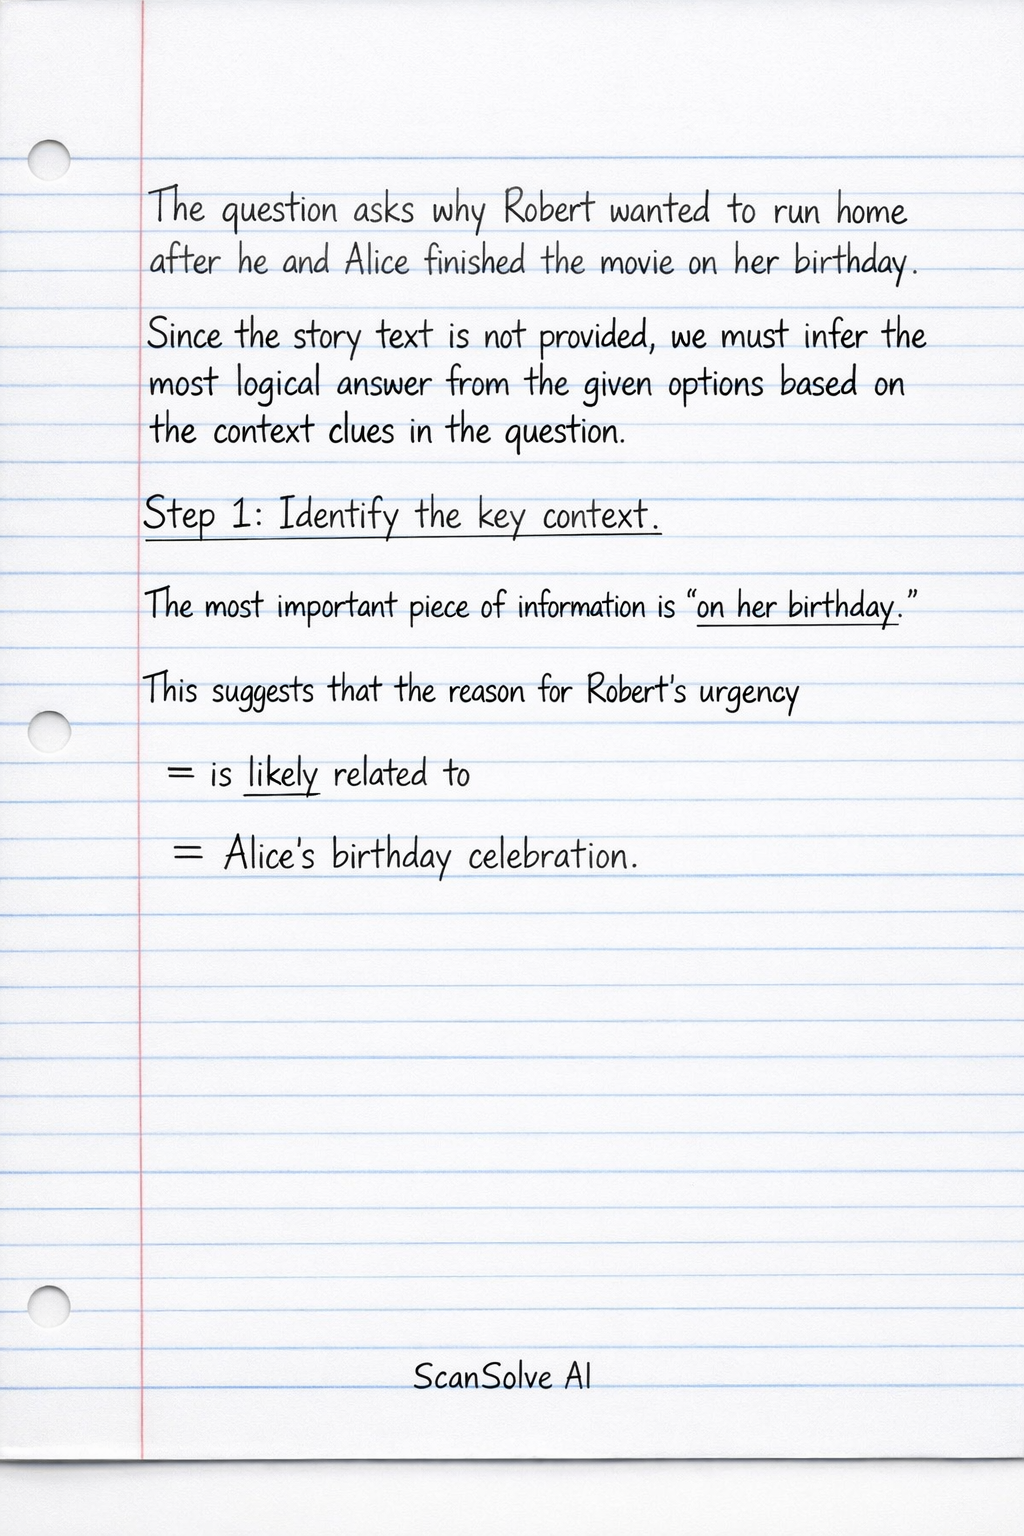 The question asks why Robert wanted to run home
after he and Alice finished the movie on her birthday.
Since the story text is not provided, we must infer the
most logical answer from the given options based on
the context clues in the question.
Step 1: Identify the key context.
The most important piece of information is “on her birthday.”
This suggests that the reason for Robert's urgency
= is likely related to
= Alice's birthday celebration.
ScanSolve AI